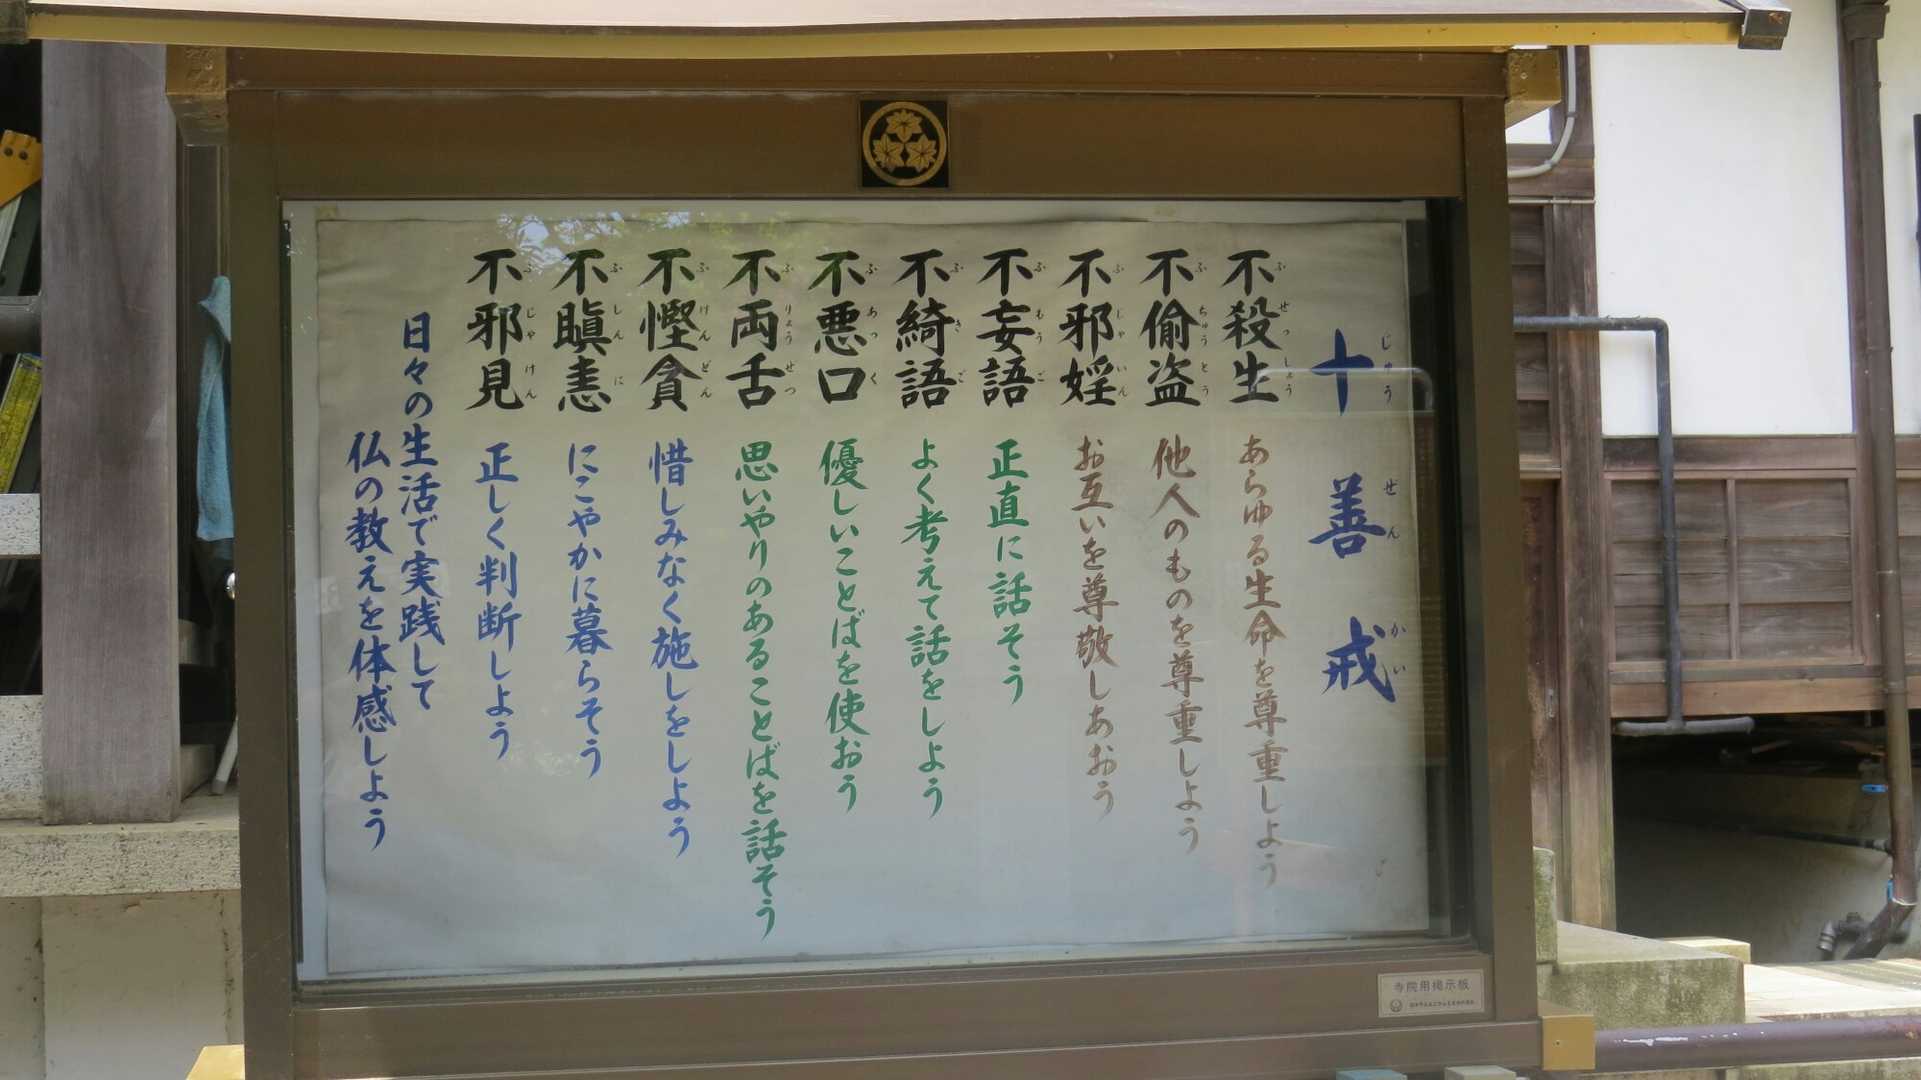 十善戒
じゅうぜんかい
不殺生 あらゆる生命を尊重しよう
ふせっしょう
不偸盗 他人のものを尊重しよう
ふちゅうとう
不邪婬 お互いを尊敬しあおう
ふじゃいん
不妄語 正直に話そう
ふもうご
不綺語 よく考えて話をしよう
ふきご
不悪口 優しいことばを使おう
ふあっく
不両舌 思いやりのあることばを話そう
ふりょうぜつ
不慳貪 惜しみなく施しをしよう
ふけんどん
不瞋恚 にこやかに暮らそう
ふしんに
不邪見 正しく判断しよう
ふじゃけん
日々の生活で実践して
仏の教えを体感しよう
寺院用掲示板